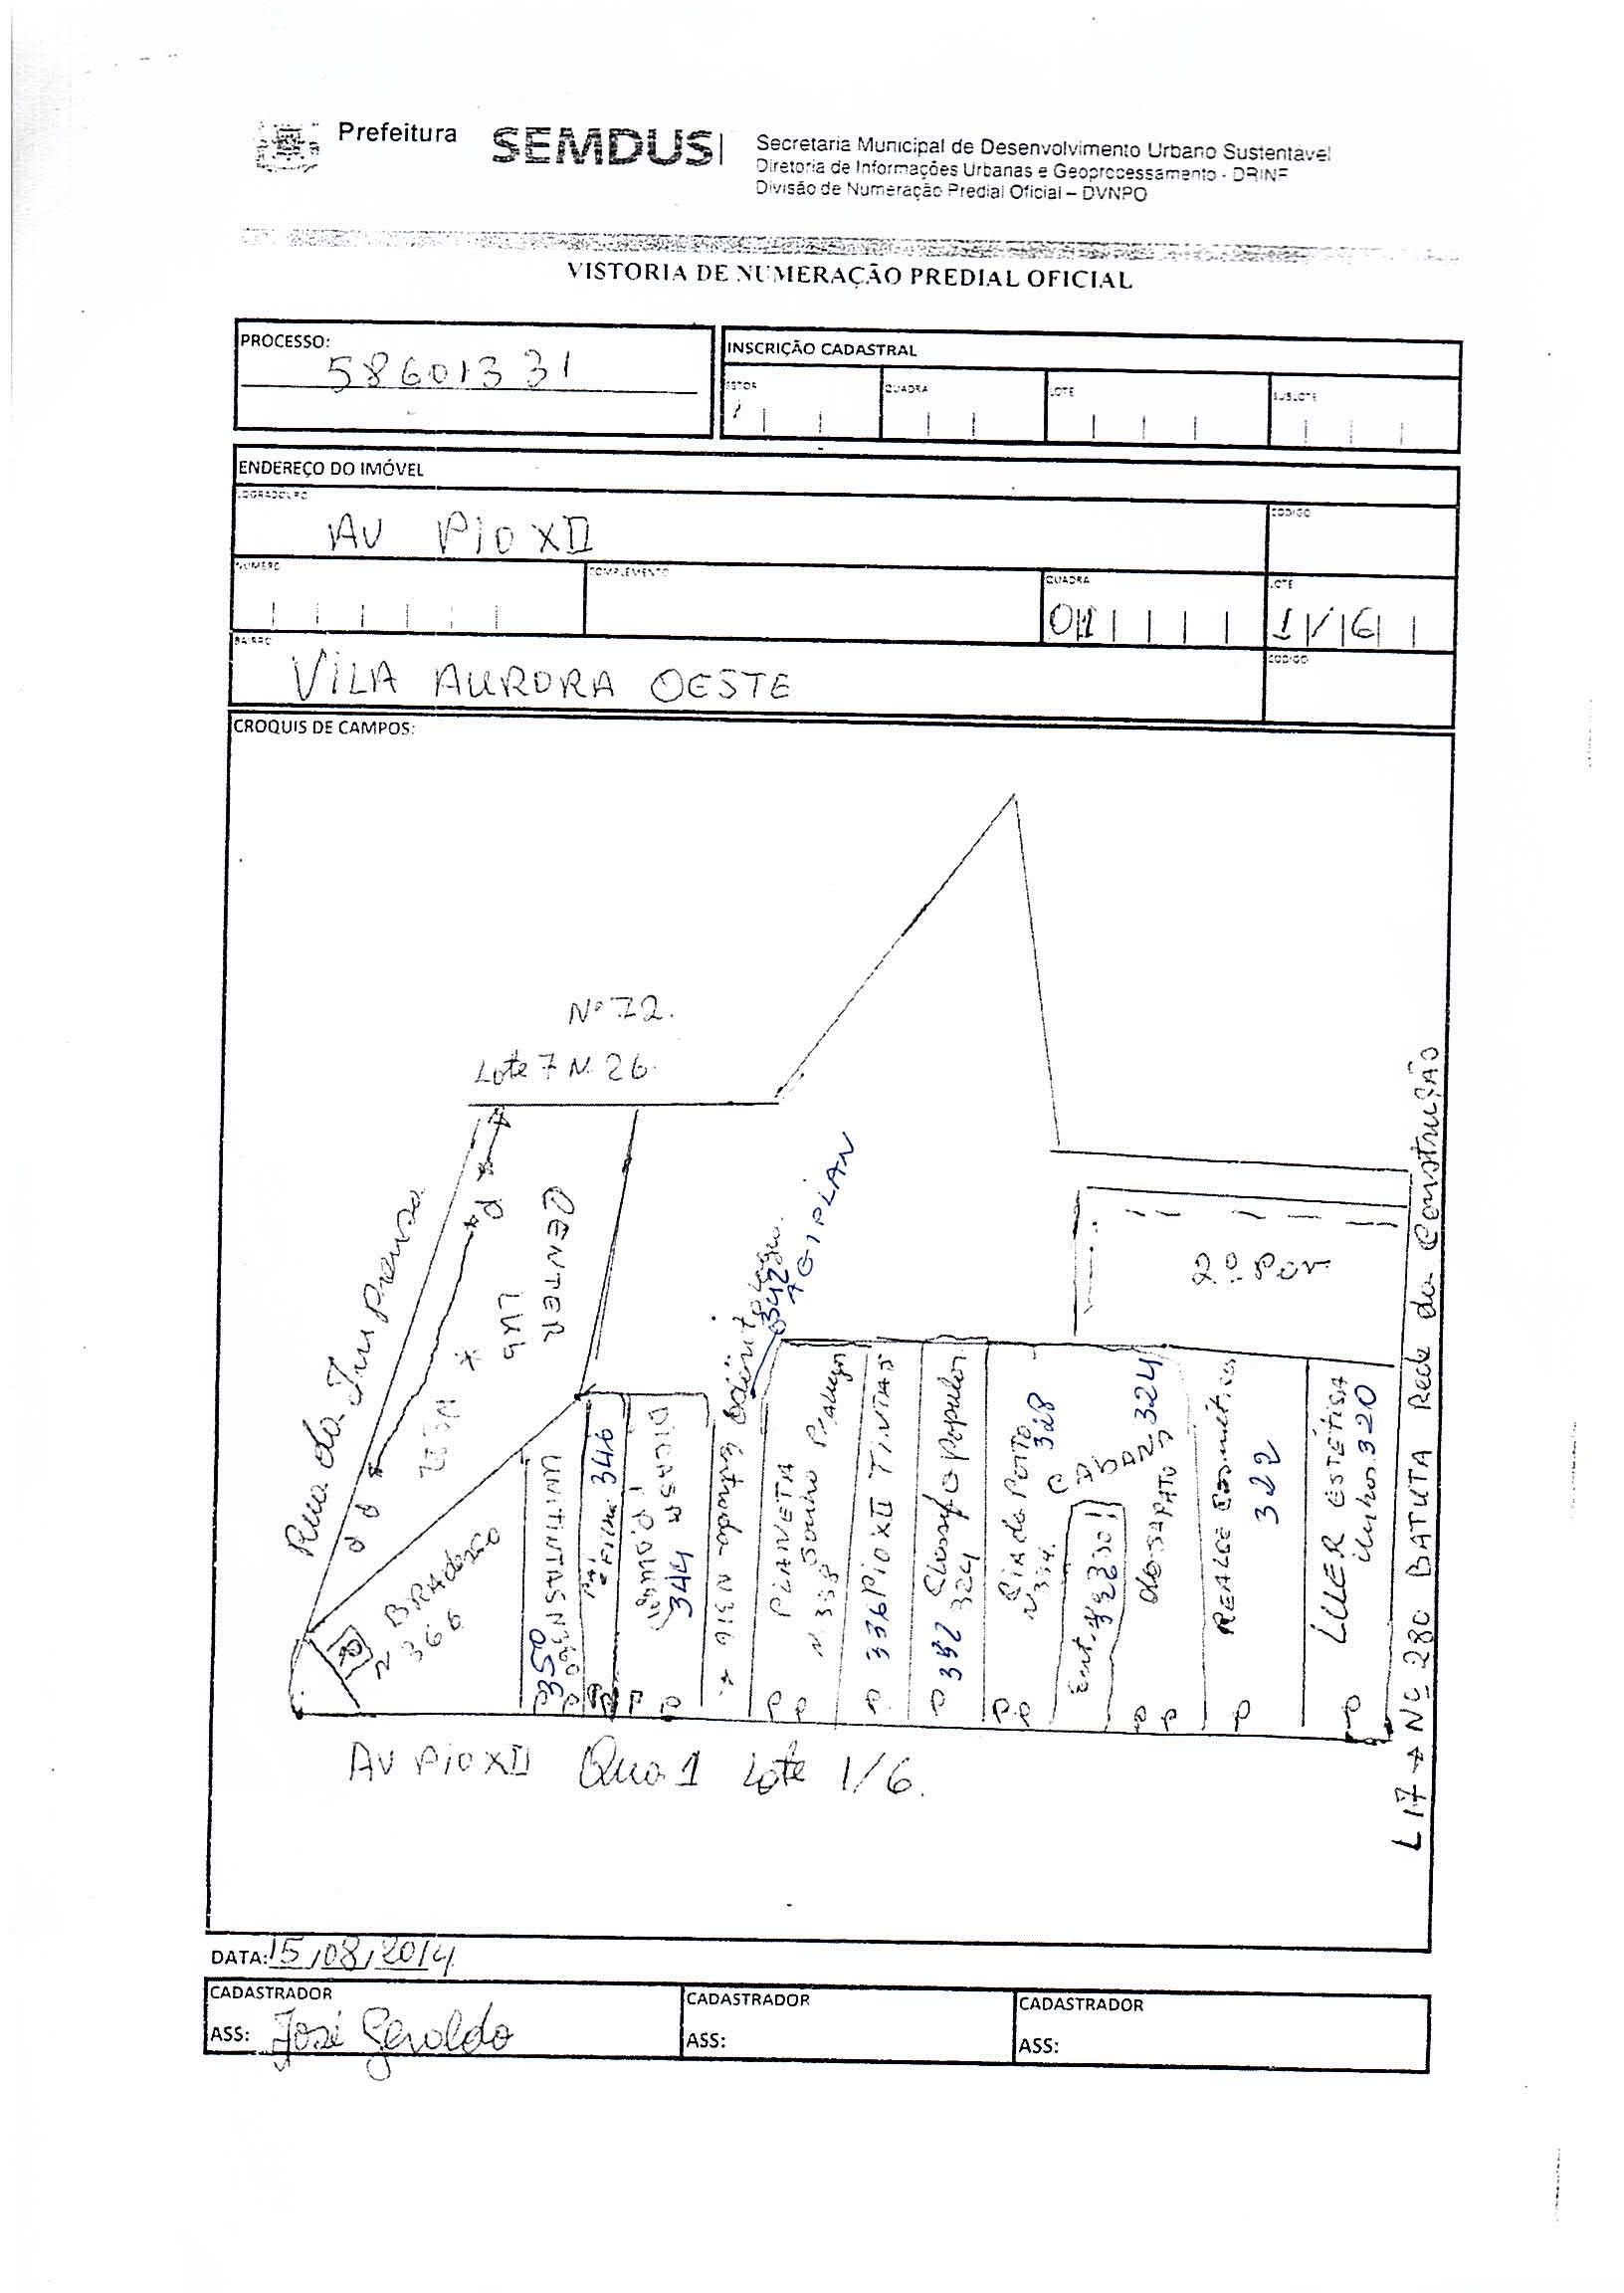 Prefeitura SEMDUS
Secretaria Municipal de Desenvolvimento Urbano Sustentável
Diretoria de Informações Urbanas e Geoprocessamento - DRINF
Divisão de Numeração Predial Oficial – DVNPO
VISTORIA DE NUMERAÇÃO PREDIAL OFICIAL
PROCESSO:
58601331
INSCRIÇÃO CADASTRAL
SETOR QUADRA LOTE SUBLOTE
ENDEREÇO DO IMÓVEL
LOGRADOURO
AV PIO XII
CODIGO
NUMERO COMPLEMENTO QUADRA LOTE
01 1/6
BAIRRO
VILA AURORA OESTE
CODIGO
CROQUIS DE CAMPOS:
Nº 72.
Lote 7 N. 26.
Rua da Imprensa
CENTER
BRAdesco
N 366
UNITINTAS N 360
350
Pai e Filho 346
DICASA
344
Entrada N 316
342 AGIPLAN
PLANETA
Sonho
N. 338
336 PIO XII TINTAS
332
324
Popular
Cia do Porto
328
Ent.
330
do SAPATO 324
REALCE Cosméticos
322
LULLER ESTÉTICA
320
2º Pav.
L 17 → Nº 280 BATUTA Rede da Construção
AV PIO XII Qua 1 Lote 1/6.
DATA: 15/08/2014
CADASTRADOR CADASTRADOR CADASTRADOR
ASS: José Geraldo ASS: ASS: